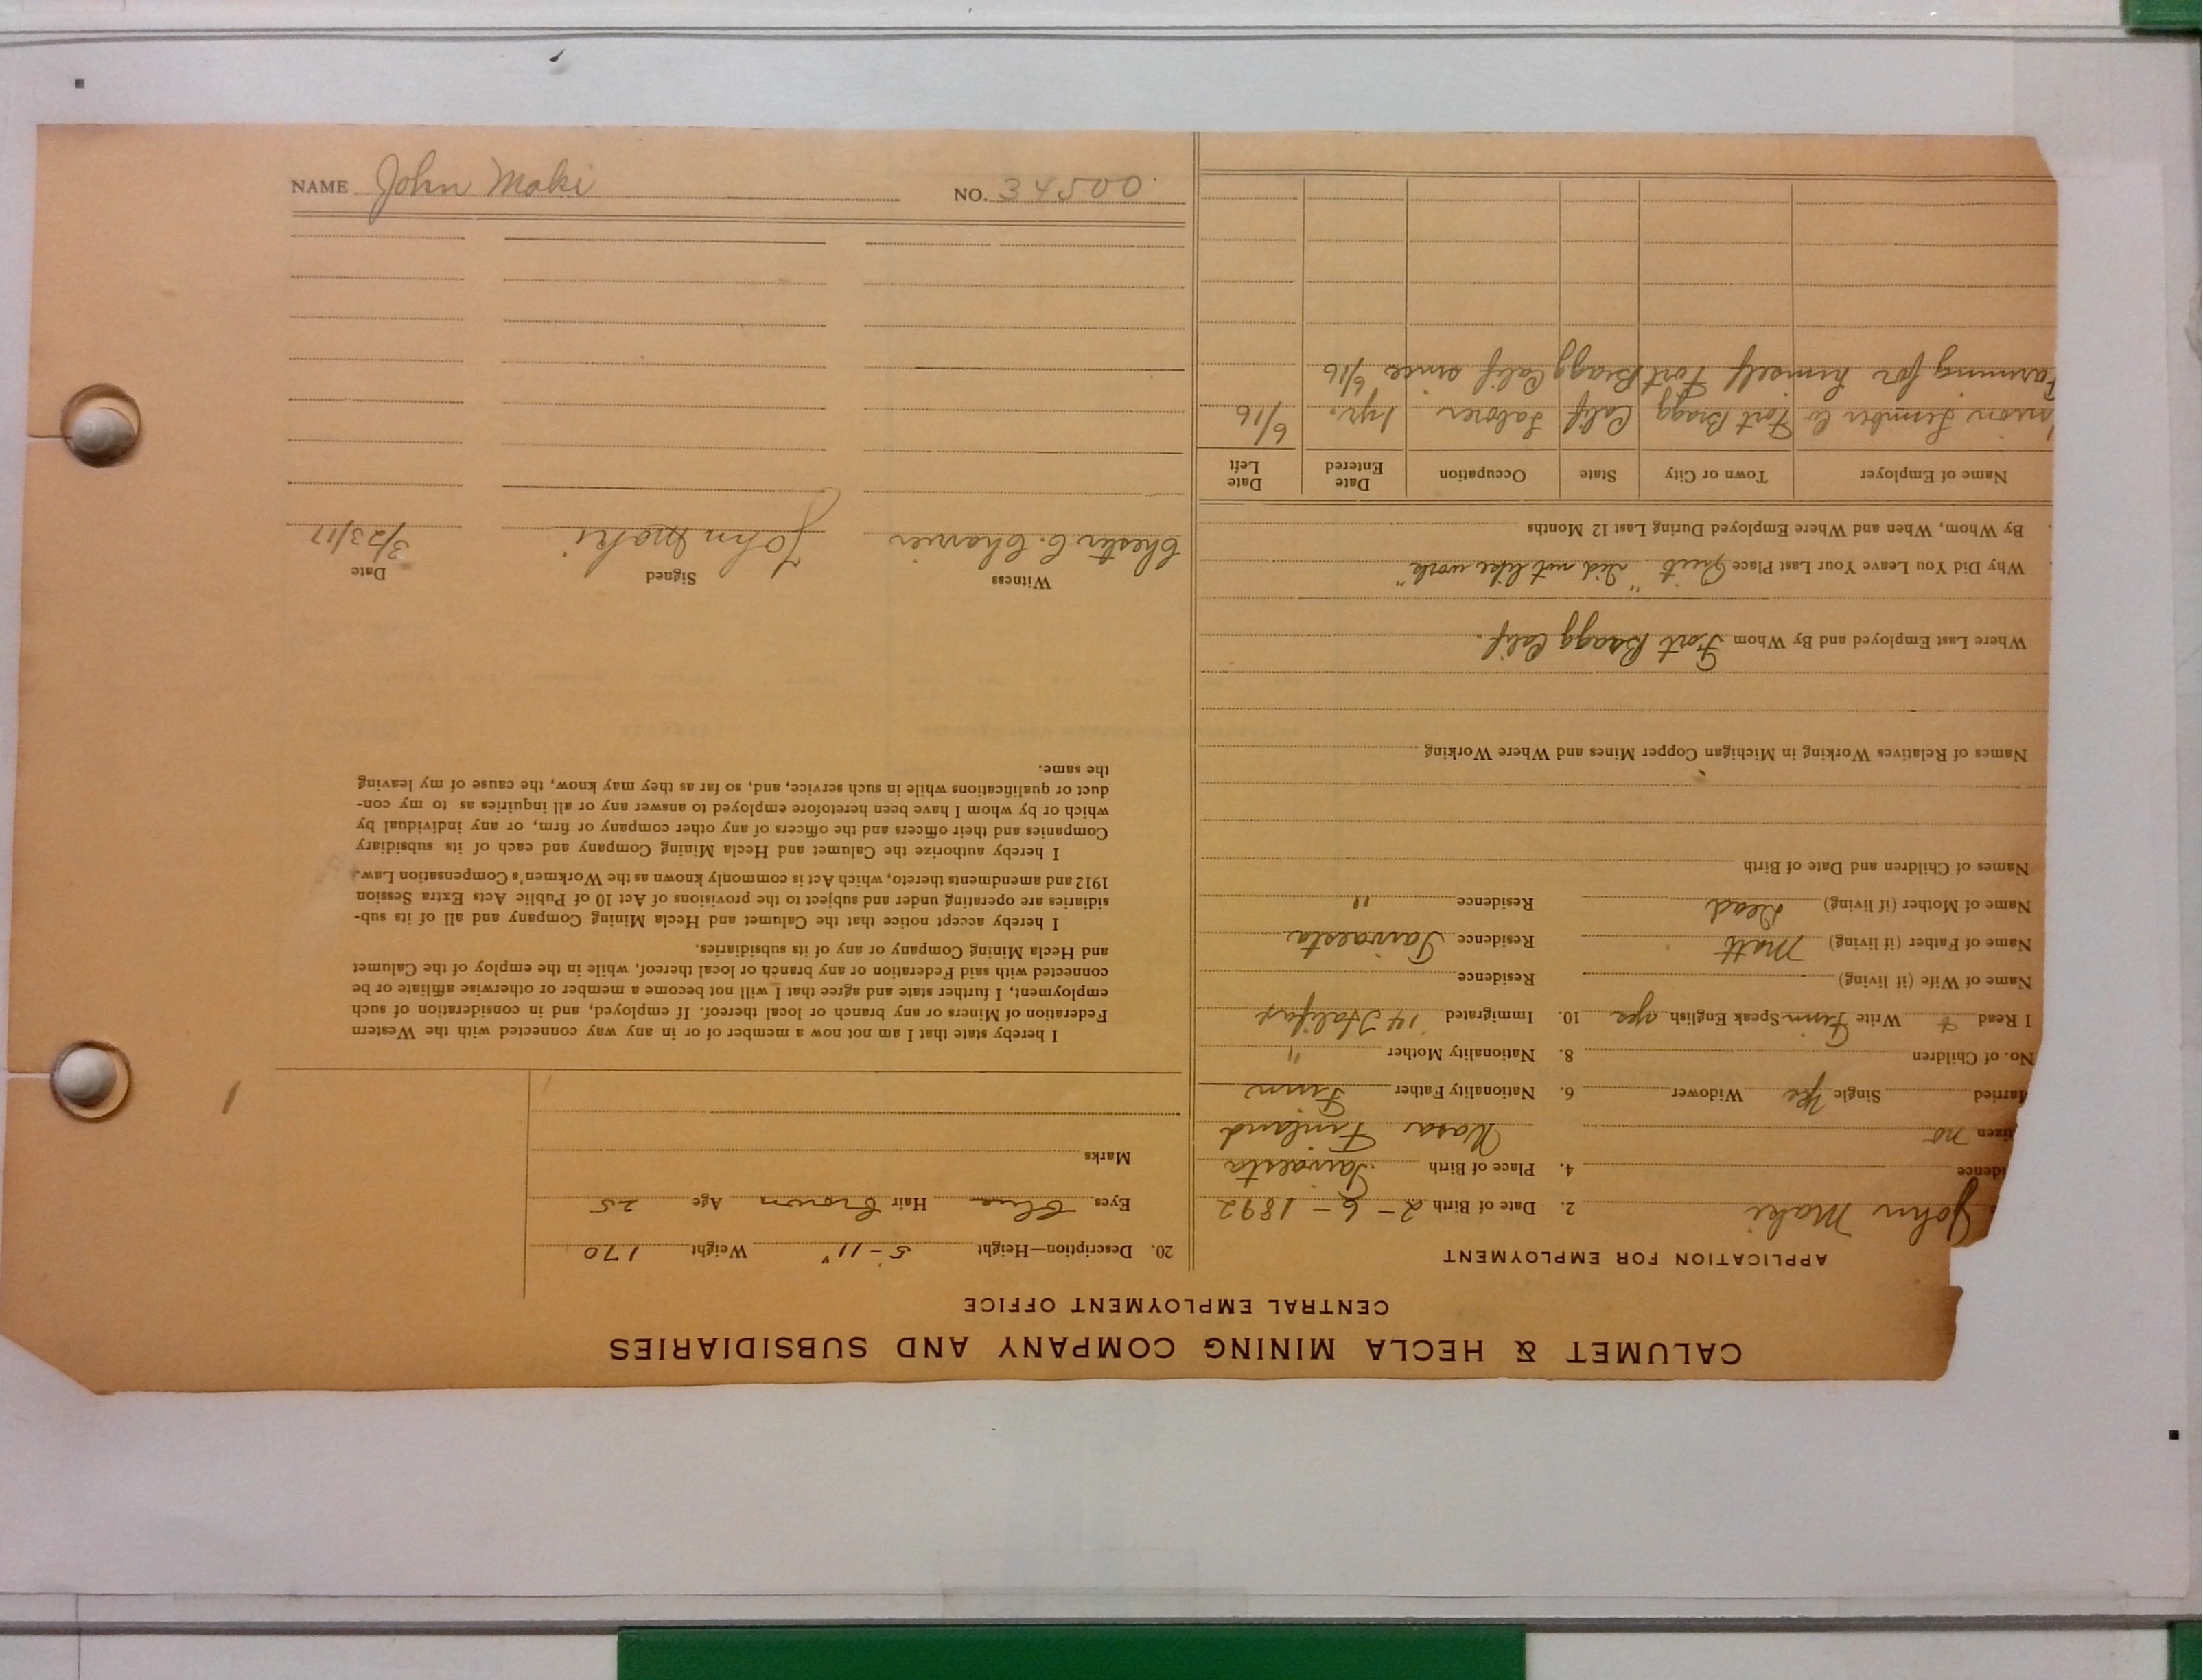 NAME John Maki NO. 34500
CALUMET & HECLA MINING COMPANY AND SUBSIDIARIES
CENTRAL EMPLOYMENT OFFICE
APPLICATION FOR EMPLOYMENT
John Maki 2. Date of Birth 2-6-1892
idence 4. Place of Birth
tizen no Wasa Finland
arried Single Yes Widower 6. Nationality Father Finn
No. of Children 8. Nationality Mother "
I Read & Write Finn Speak English yes 10. Immigrated '14 Halifax
Name of Wife (if living) Residence
Name of Father (if living) Matt Residence
Name of Mother (if living) Dead Residence "
Names of Children and Date of Birth
Names of Relatives Working in Michigan Copper Mines and Where Working
Where Last Employed and By Whom Fort Bragg Calif.
Why Did You Leave Your Last Place Quit "Did not like work"
By Whom, When and Where Employed During Last 12 Months
Name of Employer Town or City State Occupation Date Entered Date Left
Lumber Co Fort Bragg Calif Laborer 1 yr. 6/16
Farming for himself Fort Bragg Calif since 6/16
20. Description—Height 5-11" Weight 170
Eyes Blue Hair Brown Age 25
Marks
I hereby state that I am not now a member of or in any way connected with the Western
Federation of Miners or any branch or local thereof. If employed, and in consideration of such
employment, I further state and agree that I will not become a member or otherwise affiliate or be
connected with said Federation or any branch or local thereof, while in the employ of the Calumet
and Hecla Mining Company or any of its subsidiaries.
I hereby accept notice that the Calumet and Hecla Mining Company and all of its sub-
sidiaries are operating under and subject to the provisions of Act 10 of Public Acts Extra Session
1912 and amendments thereto, which Act is commonly known as the Workmen's Compensation Law.
I hereby authorize the Calumet and Hecla Mining Company and each of its subsidiary
Companies and their officers and the officers of any other company or firm, or any individual by
which or by whom I have been heretofore employed to answer any or all inquiries as to my con-
duct or qualifications while in such service, and, so far as they may know, the cause of my leaving
the same.
Witness Signed Date
Chester C. John Maki 3/23/17